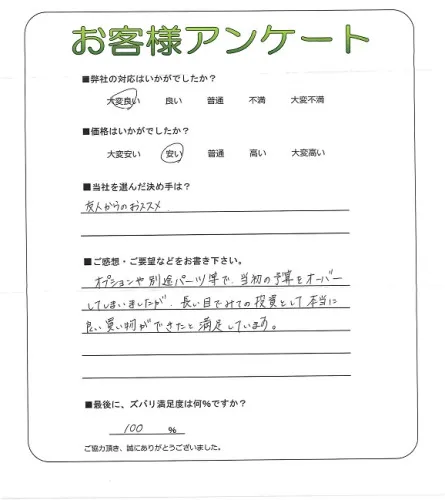 お客様アンケート
■弊社の対応はいかがでしたか?
大変良い 良い 普通 不満 大変不満
■価格はいかがでしたか?
大変安い 安い 普通 高い 大変高い
■当社を選んだ決め手は?
友人からのおススメ
■ご感想・ご要望などをお書き下さい。
オプションや別途パーツ等で、当初の予算をオーバー
してしまいましたが、長い目でみての投資として本当に
良い買い物ができたと満足しています。
■最後に、ズバリ満足度は何%ですか?
100 %
ご協力頂き、誠にありがとうございました。